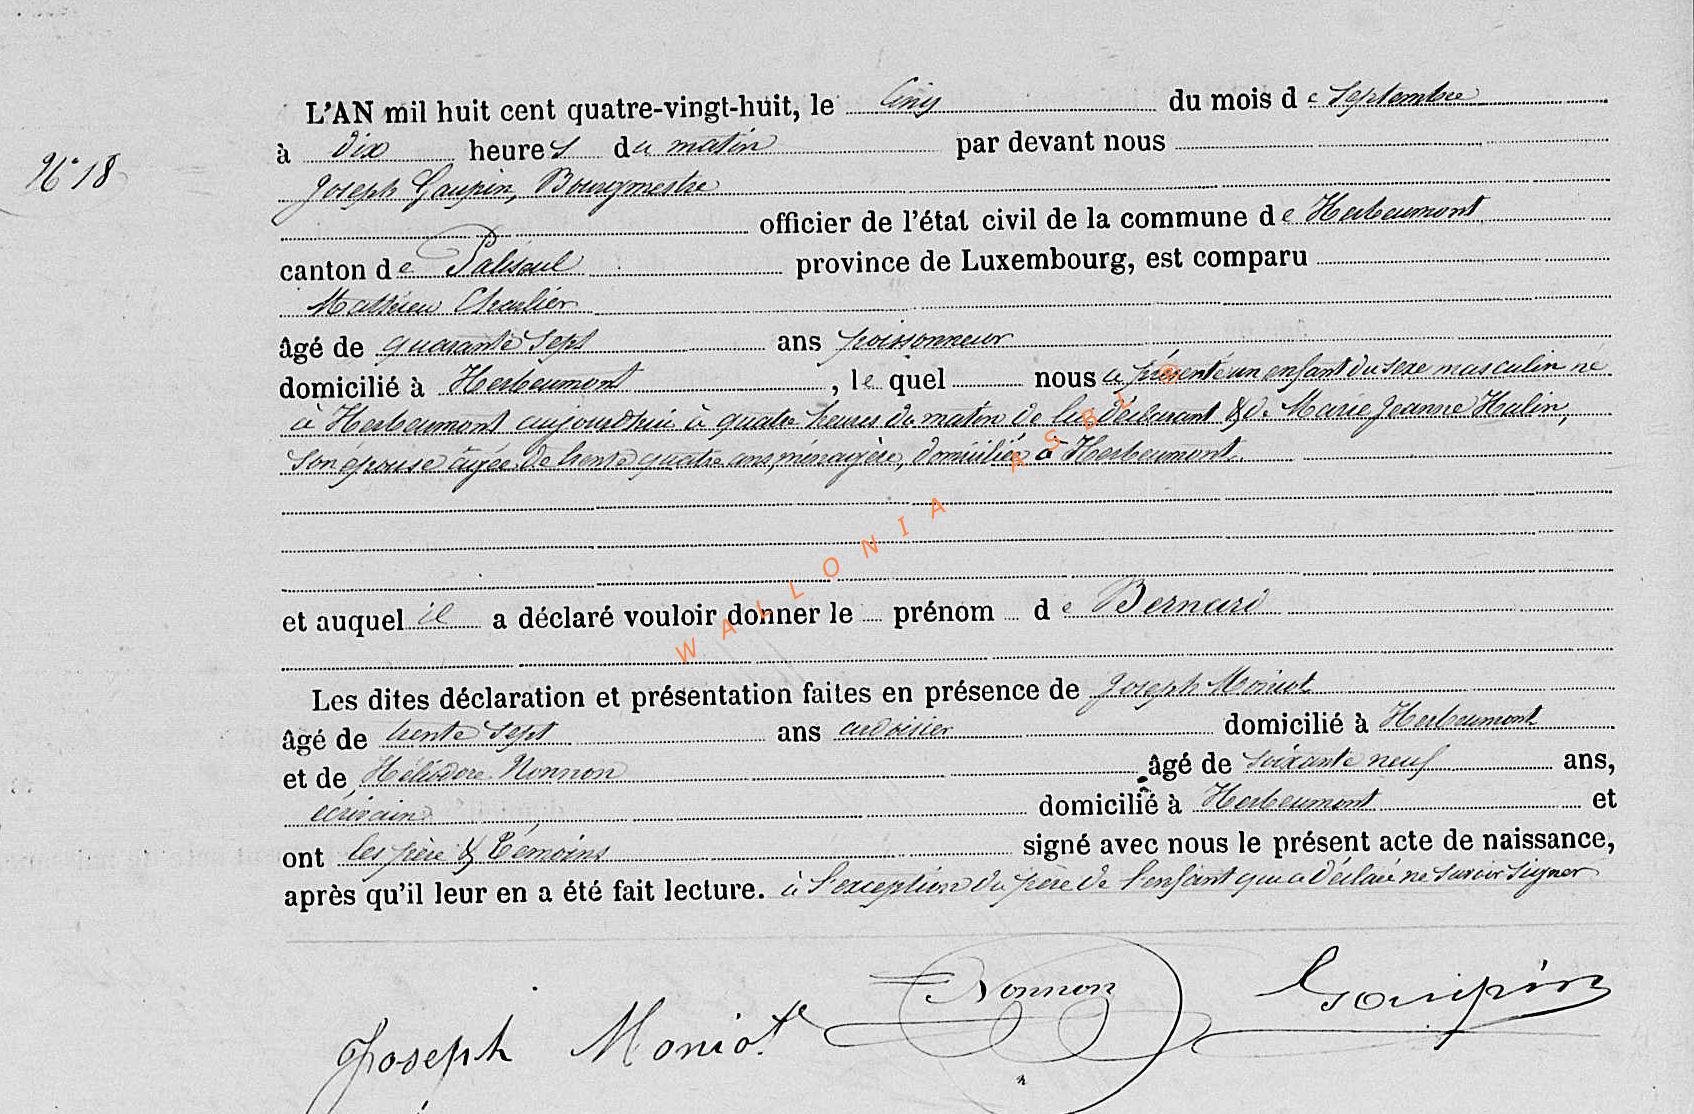 N° 18
L'AN mil huit cent quatre-vingt-huit, le Cinq du mois de Septembre
à dix heures du matin par devant nous
Joseph Goupin, Bourgmestre
officier de l'état civil de la commune de Herbeumont
canton de Paliseul province de Luxembourg, est comparu
Mathieu Charlier
âgé de quarante sept ans poissonneur
domicilié à Herbeumont, le quel nous a présenté un enfant du sexe masculin né
à Herbeumont aujourd'hui à quatre heures du matin de lui déclarant & de Marie Jeanne Hulin,
son épouse âgée de trente quatre ans, ménagère, domiciliée à Herbeumont
WALLONIA ASBL ©
et auquel il a déclaré vouloir donner le prénom de Bernard
Les dites déclaration et présentation faites en présence de Joseph Moniot
âgé de trente sept ans ardoisier domicilié à Herbeumont
et de Héliodore Nonnon âgé de soixante neuf ans,
écrivain domicilié à Herbeumont et
ont les père & témoins signé avec nous le présent acte de naissance,
après qu'il leur en a été fait lecture. à l'exception du père de l'enfant qui a déclaré ne savoir signer
Joseph Moniot Nonnon Goupin